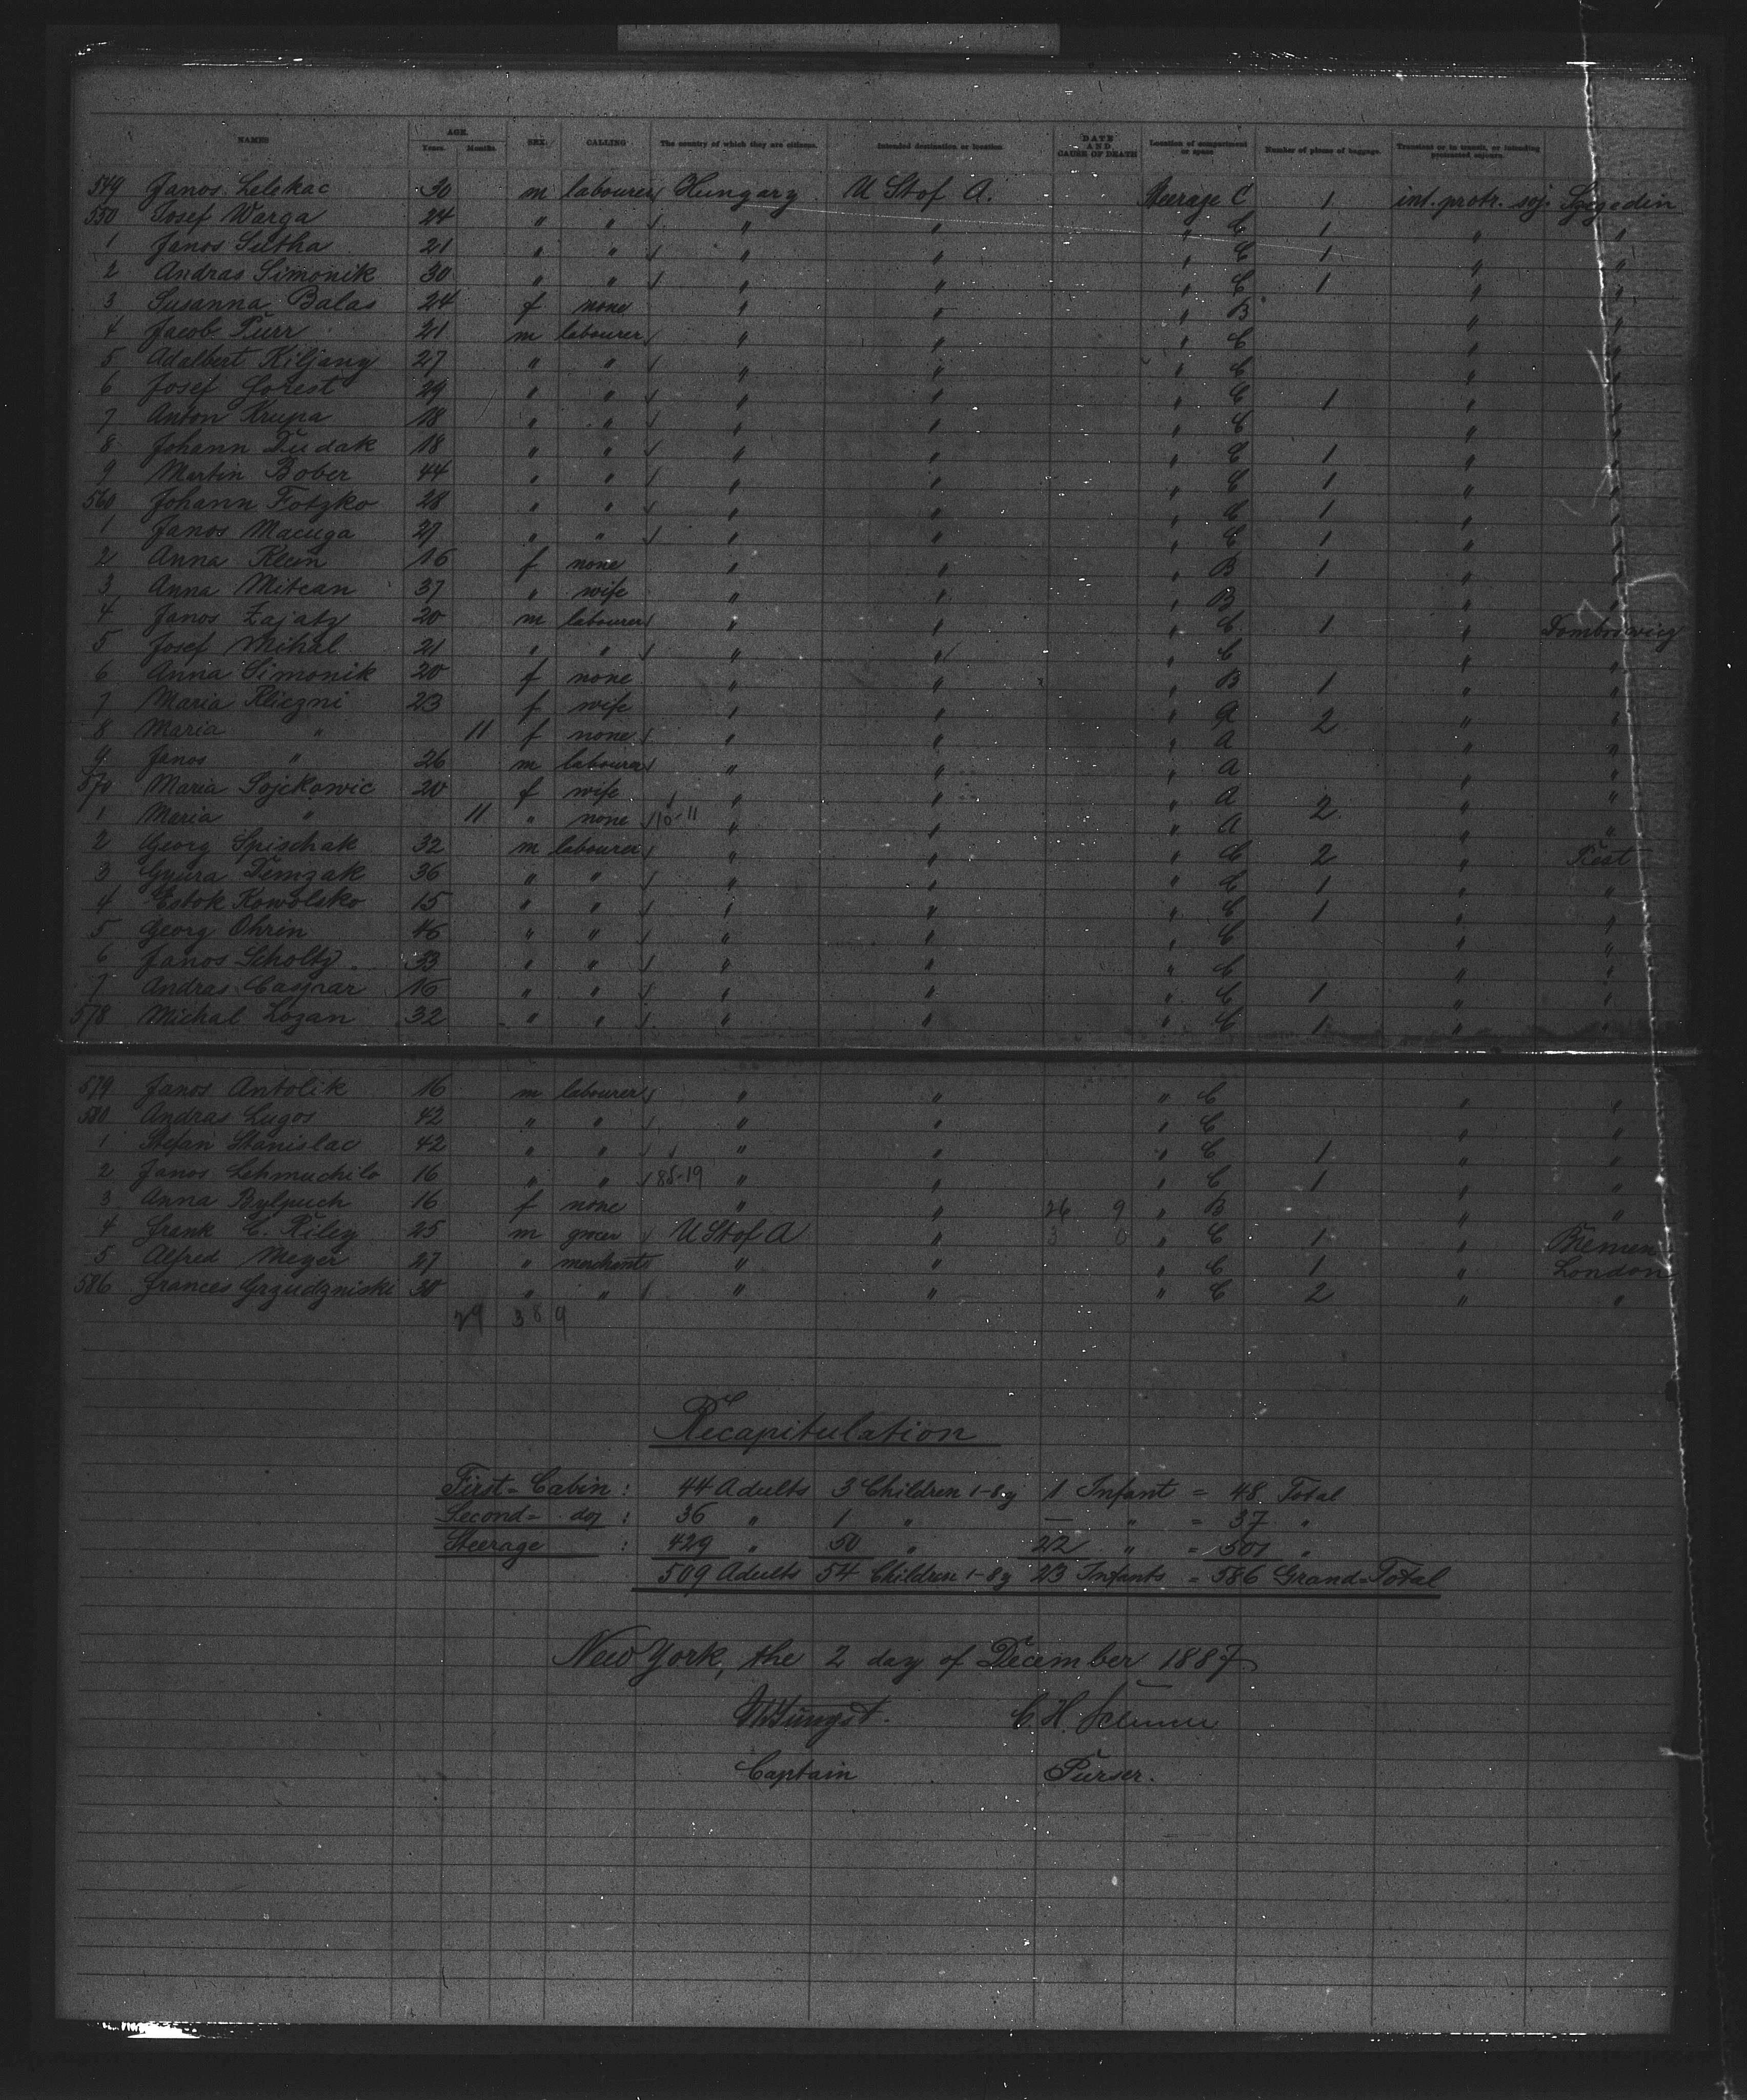 NAMES AGE. Years. Months. SEX. CALLING The country of which they are citizens. Intended destination or location DATE AND CAUSE OF DEATH Location of compartment or space Number of pieces of baggage. Transient or in transit, or intending protracted sojourn.
549 Janos Lelekac 30 m labourer Hungary U St of A. Steerage C 1 int. protr. soj. Szegedin
550 Josef Warga 24 " " " " " C 1 " "
1 Janos Sutha 21 " " " " " C 1 " "
2 Andras Simonik 30 " " " " " C 1 " "
3 Susanna Balas 24 f none " " " B " "
4 Jacob Purr 21 m labourer " " " C " "
5 Adalbert Kiljany 27 " " " " " C " "
6 Josef Forest 29 " " " " " C 1 " "
7 Anton Krupa 18 " " " " " C " "
8 Johann Dudak 18 " " " " " C 1 " "
9 Martin Bober 44 " " " " " C 1 " "
560 Johann Fotzko 28 " " " " " C 1 " "
1 Janos Macuga 27 " " " " " C 1 " "
2 Anna Klein 16 f none " " " B 1 " "
3 Anna Mitcan 37 " wife " " " B " "
4 Janos Zajatz 20 m labourer " " " C 1 "
5 Josef Mihal 21 " " " " " C " "
6 Anna Simonik 20 f none " " " B 1 " "
7 Maria Kliczni 23 f wife " " " A 2 " "
8 Maria " 11 f none " " " A " "
9 Janos " 26 m labourer " " " A " "
570 Maria Sojckowic 20 f wife " " " A 2 " "
1 Maria " 11 " none 10-11 " " " A " "
2 Georg Spischak 32 m labourer " " " C 2 " Pest
3 Gyura Demzak 36 " " " " " C 1 " "
4 Estok Kowolsko 15 " " " " " C 1 " "
5 Georg Ohrin 46 " " " " " C " "
6 Janos Scholtz 33 " " " " " C " "
7 Andras Caspar 16 " " " " " C 1 " "
578 Michal Lozan 32 " " " " " C 1 " "
579 Janos Antolik 16 m labourer " " " C " "
580 Andras Lugos 42 " " " " " C " "
1 Stefan Stanislac 42 " " " " " C 1 " "
2 Janos Lehmuchilo 16 " " 85-19 " " " C 1 " "
3 Anna 16 f none " " 26 9 " B " "
4 Frank C. Riley 25 m grocer U St of A " 3 0 " C 1 " Bremen
5 Alfred Meyer 27 " merchant " " " C 1 " London
586 Frances Grzudzniski 30 " " " " " C 2 " "
29 389
Recapitulation
First-Cabin : 44 Adults 3 Children 1-8y 1 Infant = 48 Total
Second- do : 36 " 1 " — " = 37 "
Steerage : 429 " 50 " 22 " = 501 "
509 Adults 54 Children 1-8y 23 Infants = 586 Grand-Total
New York, the 2 day of December 1887
C. H.
Captain Purser.